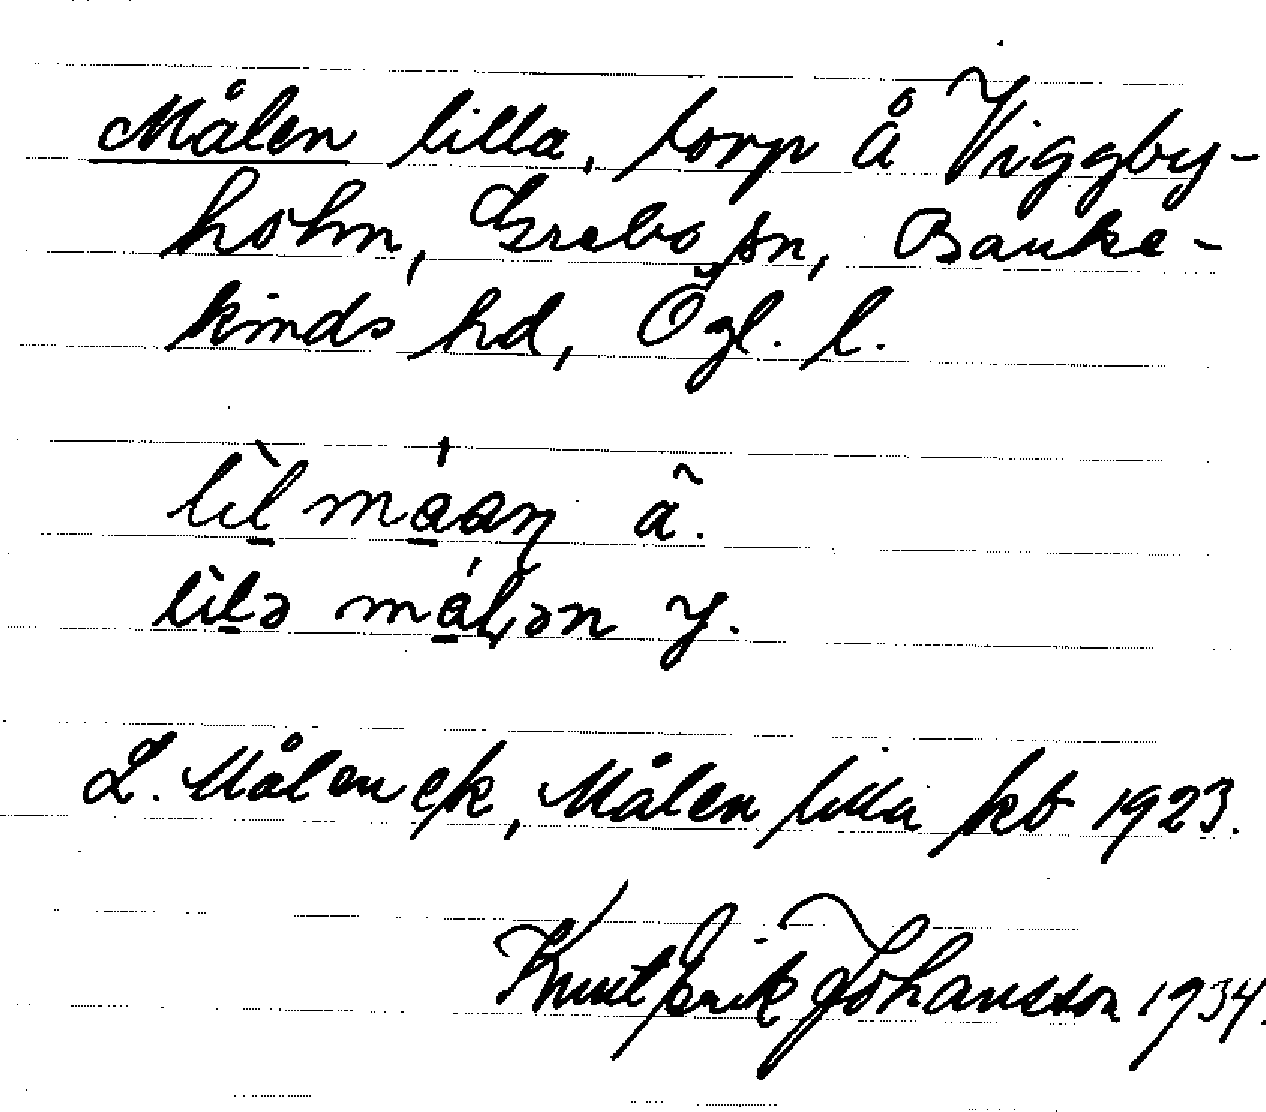 Målen lilla, torp å Viggby-
holm, Grebo sn, Banke-
kinds hd, Ögl. l.
lìl måaŋ ä.
lìlə målən y.
L. Målen ek, Målen lilla kb 1923.
Knut Erik Johansson 1934.